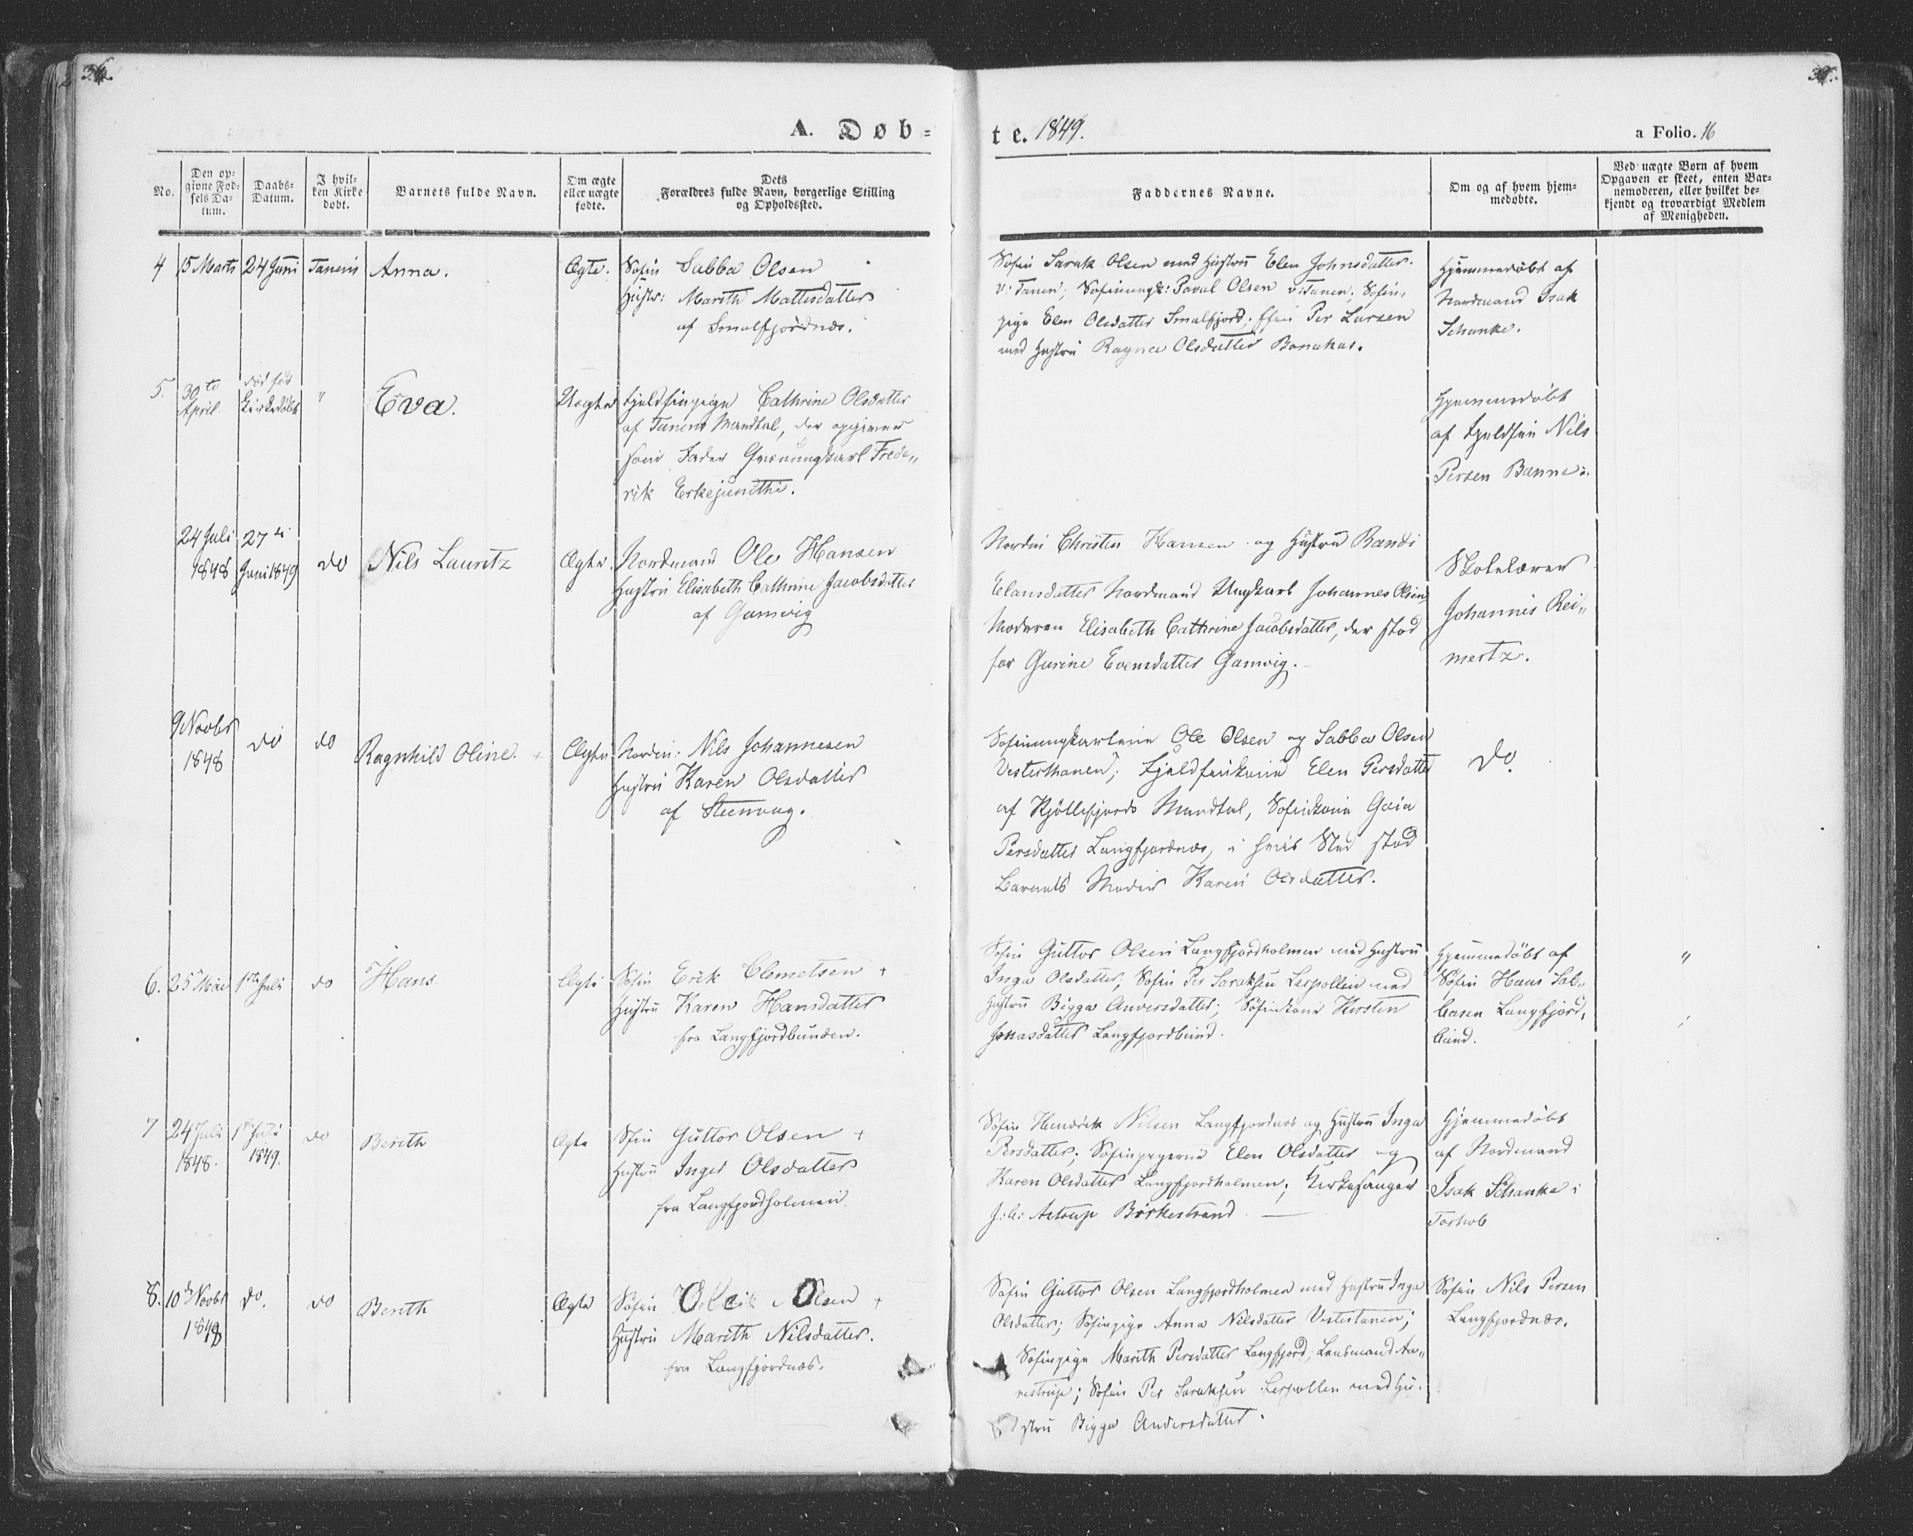 36.
37.
A. Døb-
te. 1849.
a Folio. 16
No.
Den op-
givne Fød-
sels Da-
tum.
Daabs-
Datum.
I hvil-
ken Kirke
døbt.
Barnets fulde Navn.
Om ægte
eller uægte
fødte.
Dets
Forældres fulde Navn, borgerlige Stilling
og Opholdssted.
Faddernes Navne.
Om og af hvem hjem-
medøbte.
Ved uægte Børn af hvem
Opgaven er skeet, enten Bar-
nemoderen, eller hvilket be-
kjendt og troværdigt Medlem
af Menigheden.
4 15 Marts 24 Juni Tanens Anna. Ægte. Søfin Sabba Olsen
Hustr: Marith Mattesdatter
af Smalfjordnæs.
Søfin Sarak Olsen med Hustru Elen Johnsdatter
v: Tanen; Søfinungk: Paval Olsen v: Tanen; Søfin,
pige Elen Olsdatter Smalfjord; Per Larsen
med Hustru Ragna Olsdatter Bonakas.
Hjemmedøbt af
Nordmand Isak
Schanke.
5. 30te
April. død før
Kirkedøbt " Eva. Uægte Fjeldfinpige Cathrine Olsdatter
af Tanens Mandtal, der opgiver
som Fader Qvænungkarl Frede„
rik Erkejunithi.
Hjemmedøbt
af Fjeldfin Nils
Persen Banne.
24 Juli
1848 27de
Juni 1849 do Nils Lauritz Ægte. Nordmand Ole Hansen
Hustru Elisabeth Cathrine Jacobsdatter
af Gamvig
Nordm Christen Hansen og Hustru Randi
Elansdatter Nordmand Ungkarl Johannes Olsen,
Moderen Elisabeth Cathrine Jacobsdatter, der stod
for Gurine Evensdatter Gamvig.
Skolelærer
Johannes Rei„
mertz.
9 Novbr
1848 do do Ragnhild Oline. Ægte Nordm: Nils Johannesen
Hustru Karen Olsdatter
af Steenvag.
Søfinungkarlene Ole Olsen og Sabba Olsen
Vestertanen; Fjeldfinkone Elen Persdatter
af Kjøllefjords Mandtal, Søfinkone Gaia
Persdatter Langfjordnæs, i hvis Sted stod
Barnets Moder Karen Olsdatter.
Do.
6. 25 Mai 1ste Juli do Hans Ægte Søfin Erik Clemetsen +
Hustru Karen Hansdatter
fra Langfjordbunden.
Søfin Guttor Olsen Langfjordholmen med Hustru
Inga Olsdatter, Søfin Per Saraksen Leerpollen med
Hustru Bigga Andersdatter; Søfinkone Kirsten
Jonasdatter Langfjordbund.
Hjemmedøbt af
Søfin Hans Sab„
basen Langfjord,
bund.
"
7 24 Juli
1848. 1ste Juli
1849. do Berith Ægte Søfin Guttor Olsen +
Hustru Inger Olsdatter
fra Langfjordholmen
Søfin Hendrik Nilsen Langfjordnæs og Hustru Inga
Persdatter; Søfinpigerne Elen Olsdatter og
Karen Olsdatter Langfjordholmen; Kirkesanger
Astrup Birkestrand
Hjemmedøbt
af Nordmand
Isak Schanke i
Torhob
8. 10de Novbr
1848 do. do Berith Ægte Søfin Ole Olsen +
Hustru Marith Nilsdatter.
fra Langfjordnæs.
Søfin Guttor Olsen Langfjordholmen med Hustru Inga
Olsdatter; Søfinpige Anna Nilsdatter Vestertanen;
Søfinpige Marith Persdatter Langfjord; Lensmand
Søfin Per Saraksen Leerpollen med Hu-
stru Bigga Andersdatter.
Søfin Nils Persen
Langfjordnæs.